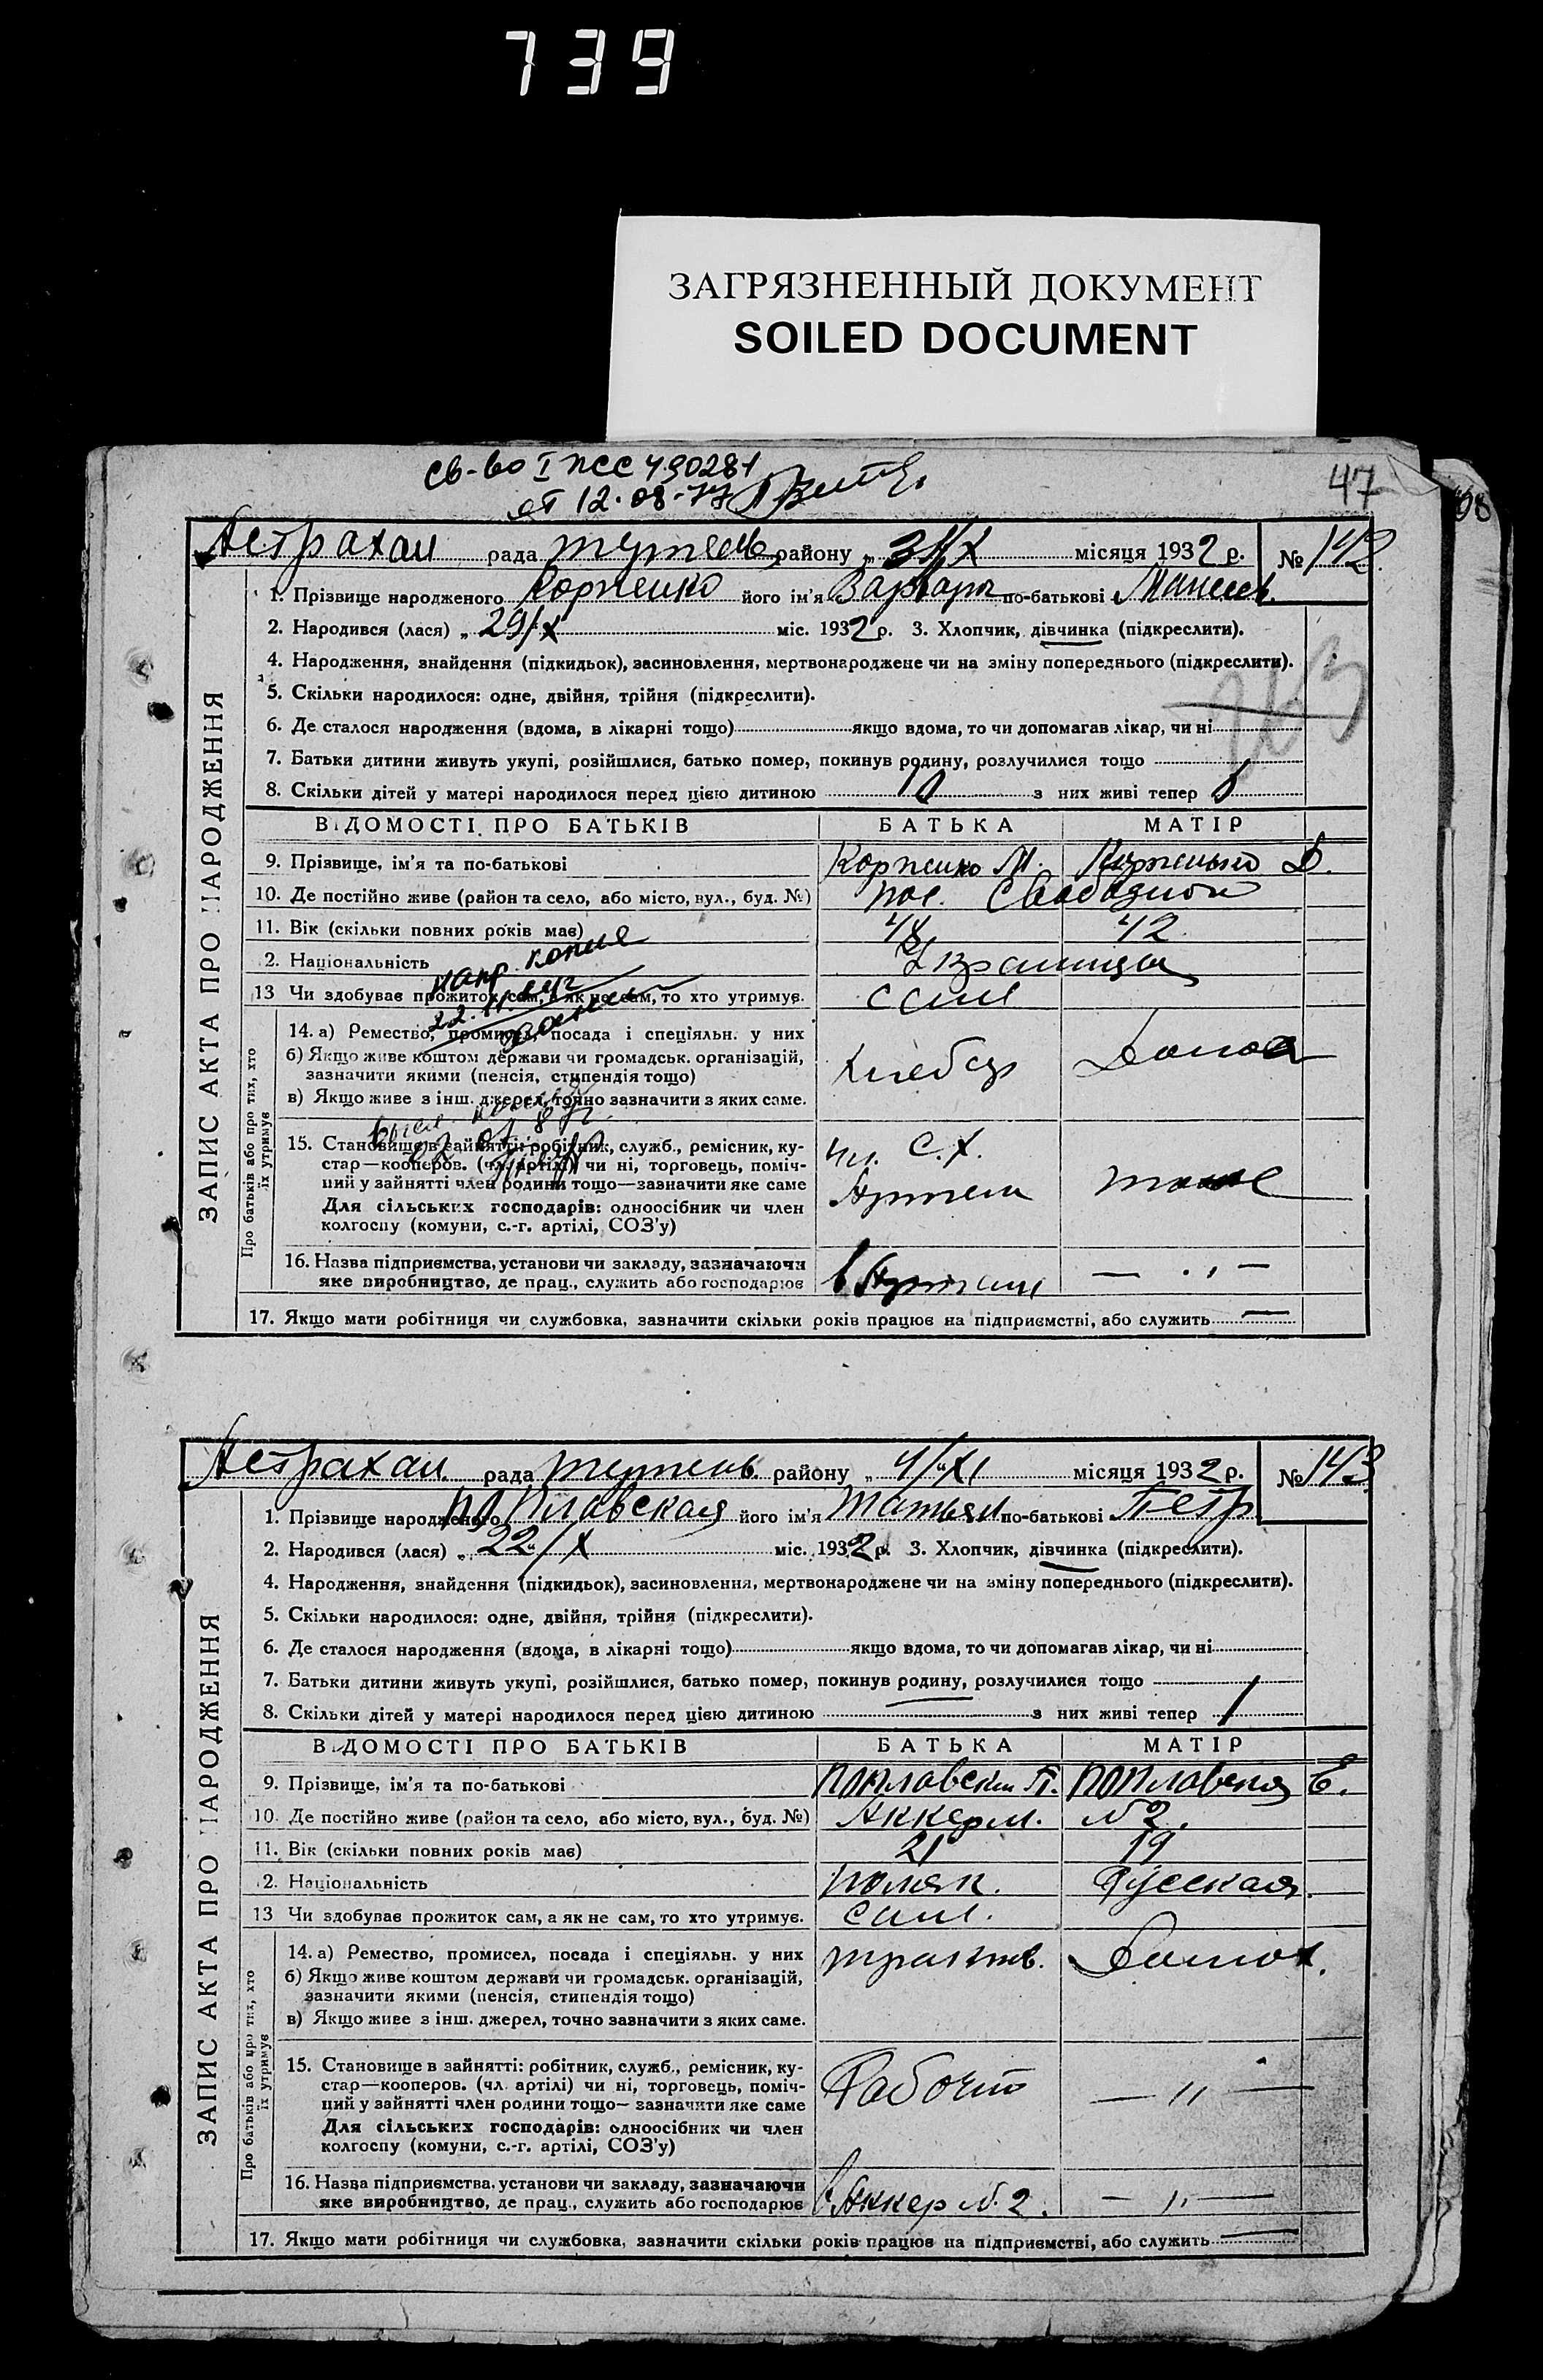 739
ЗАГРЯЗНЕННЫЙ ДОКУМЕНТ
SOILED DOCUMENT
Св-во I ПСС 490281
от 12.08-77
47
Астрахан рада района 1932 р. № 142
ЗАПИС АКТА ПРО НАРОДЖЕННЯ
1. Прізвище народженого Корженко його ім'я Варвара по-батькові
2. Народився (лася) „ 29/X міс. 1932 р. 3. Хлопчик, дівчинка (підкреслити).
4. Народження, знайдення (підкидьок), засиновлення, мертвонароджене чи на зміну попереднього (підкреслити).
5. Скільки народилося: одне, двійня, трійня (підкреслити).
6. Де сталося народження (вдома, в лікарні тощо) якщо вдома, то чи допомагав лікар, чи ні
7. Батьки дитини живуть укупі, розійшлися, батько помер, покинув родину, розлучилися тощо
8. Скільки дітей у матері народилося перед цією дитиною 10 з них живі тепер
ВІДОМОСТІ ПРО БАТЬКІВ БАТЬКА МАТІР
9. Прізвище, ім'я та по-батькові Корженко М. Корженько Д.
10. Де постійно живе (район та село, або місто, вул., буд. №) пос. Свободной
11. Вік (скільки повних років має) 48 42
12. Національність Украинцы
напр. копия
13 Чи здобуває прожиток сам, а як не сам, то хто утримує. сами
Про батьків або про тих, хто їх утримує
14. а) Ремество, промисел, посада і спеціяльн. у них
б) Якщо живе коштом держави чи громадськ. організацій,
зазначити якими (пенсія, стипендія тощо) Хлебор Домох
в) Якщо живе з інш. джерел, точно зазначити з яких саме.
15. Становище в зайнятті: робітник, служб., ремісник, ку-
стар—кооперов. (чл. артілі) чи ні, торговець, поміч- чл. С.Х.
ний у зайнятті член родини тощо—зазначити яке саме Артели тоже
Для сільських господарів: одноосібник чи член
колгоспу (комуни, с.-г. артілі, СОЗ'у)
16. Назва підприємства, установи чи закладу, зазначаючи
яке виробництво, де прац., служить або господарює в Артели — „ —
17. Якщо мати робітниця чи службовка, зазначити скільки років працює на підприємстві, або служить —
Астрахан. рада району „ 4/XI місяця 1932 р. № 143
ЗАПИС АКТА ПРО НАРОДЖЕННЯ
1. Прізвище народженого Поплавская його ім'я Татьян по-батькові Петр
2. Народився (лася) „ 22/X міс. 1932 р. 3. Хлопчик, дівчинка (підкреслити).
4. Народження, знайдення (підкидьок), засиновлення, мертвонароджене чи на зміну попереднього (підкреслити).
5. Скільки народилося: одне, двійня, трійня (підкреслити).
6. Де сталося народження (вдома, в лікарні тощо) якщо вдома, то чи допомагав лікар, чи ні
7. Батьки дитини живуть укупі, розійшлися, батько помер, покинув родину, розлучилися тощо
8. Скільки дітей у матері народилося перед цією дитиною — з них живі тепер 1
ВІДОМОСТІ ПРО БАТЬКІВ БАТЬКА МАТІР
9. Прізвище, ім'я та по-батькові Поплавский П. Поплавская Е.
10. Де постійно живе (район та село, або місто, вул., буд. №) Аккерм. N 2.
11. Вік (скільки повних років має) 21 19
12. Національність поляк. Русская.
13 Чи здобуває прожиток сам, а як не сам, то хто утримує. сами.
Про батьків або про тих, хто їх утримує
14. а) Ремество, промисел, посада і спеціяльн. у них тракт. Домох.
б) Якщо живе коштом держави чи громадськ. організацій,
зазначити якими (пенсія, стипендія тощо)
в) Якщо живе з інш. джерел, точно зазначити з яких саме.
15. Становище в зайнятті: робітник, служб., ремісник, ку-
стар—кооперов. (чл. артілі) чи ні, торговець, поміч- Рабочий — „ —
ний у зайнятті член родини тощо— зазначити яке саме
Для сільських господарів: одноосібник чи член
колгоспу (комуни, с.-г. артілі, СОЗ'у)
16. Назва підприємства, установи чи закладу, зазначаючи
яке виробництво, де прац., служить або господарює в Аккер N. 2. — „ —
17. Якщо мати робітниця чи службовка, зазначити скільки років працює на підприємстві, або служить —